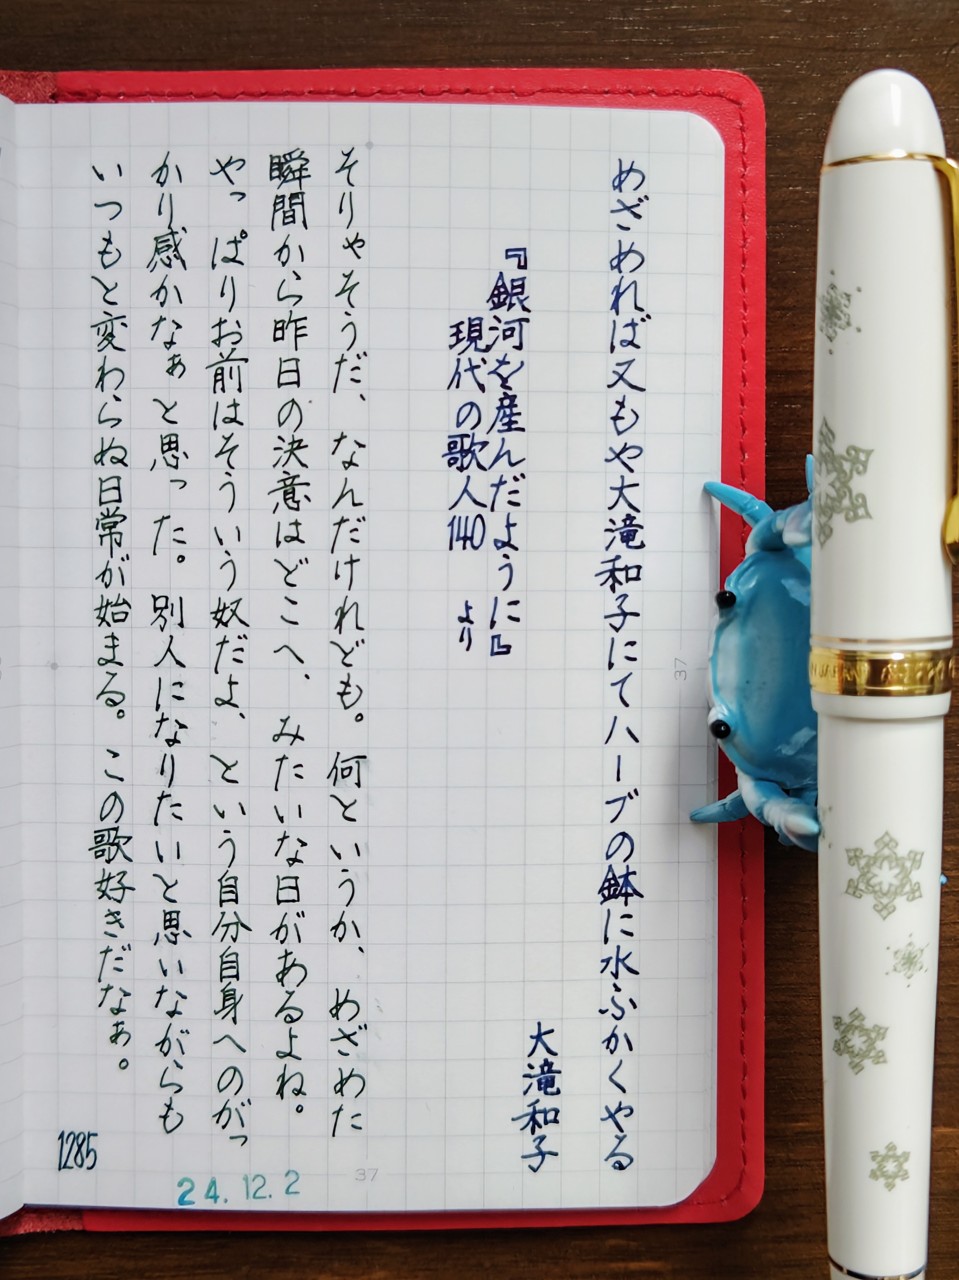 めざめれば又もや大滝和子にてハーブの鉢に水ふかくやる
大滝和子
『銀河を産んだように』
現代の歌人140 より
そりゃそうだ、なんだけれども。何というか、めざめた
瞬間から昨日の決意はどこへ、みたいな日があるよね。
やっぱりお前はそういう奴だよ、という自分自身へのがっ
かり感かなぁと思った。別人になりたいと思いながらも
いつもと変わらぬ日常が始まる。この歌好きだなぁ。
1285
24.12.2
37
37